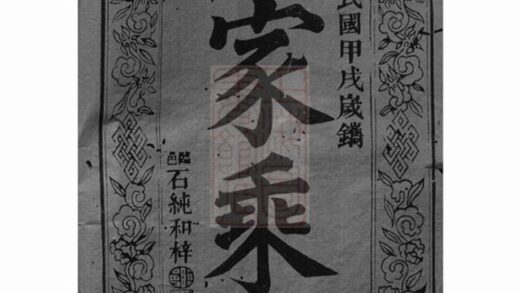 民國甲戌歲鐫
家乘
臨邑石純和梓